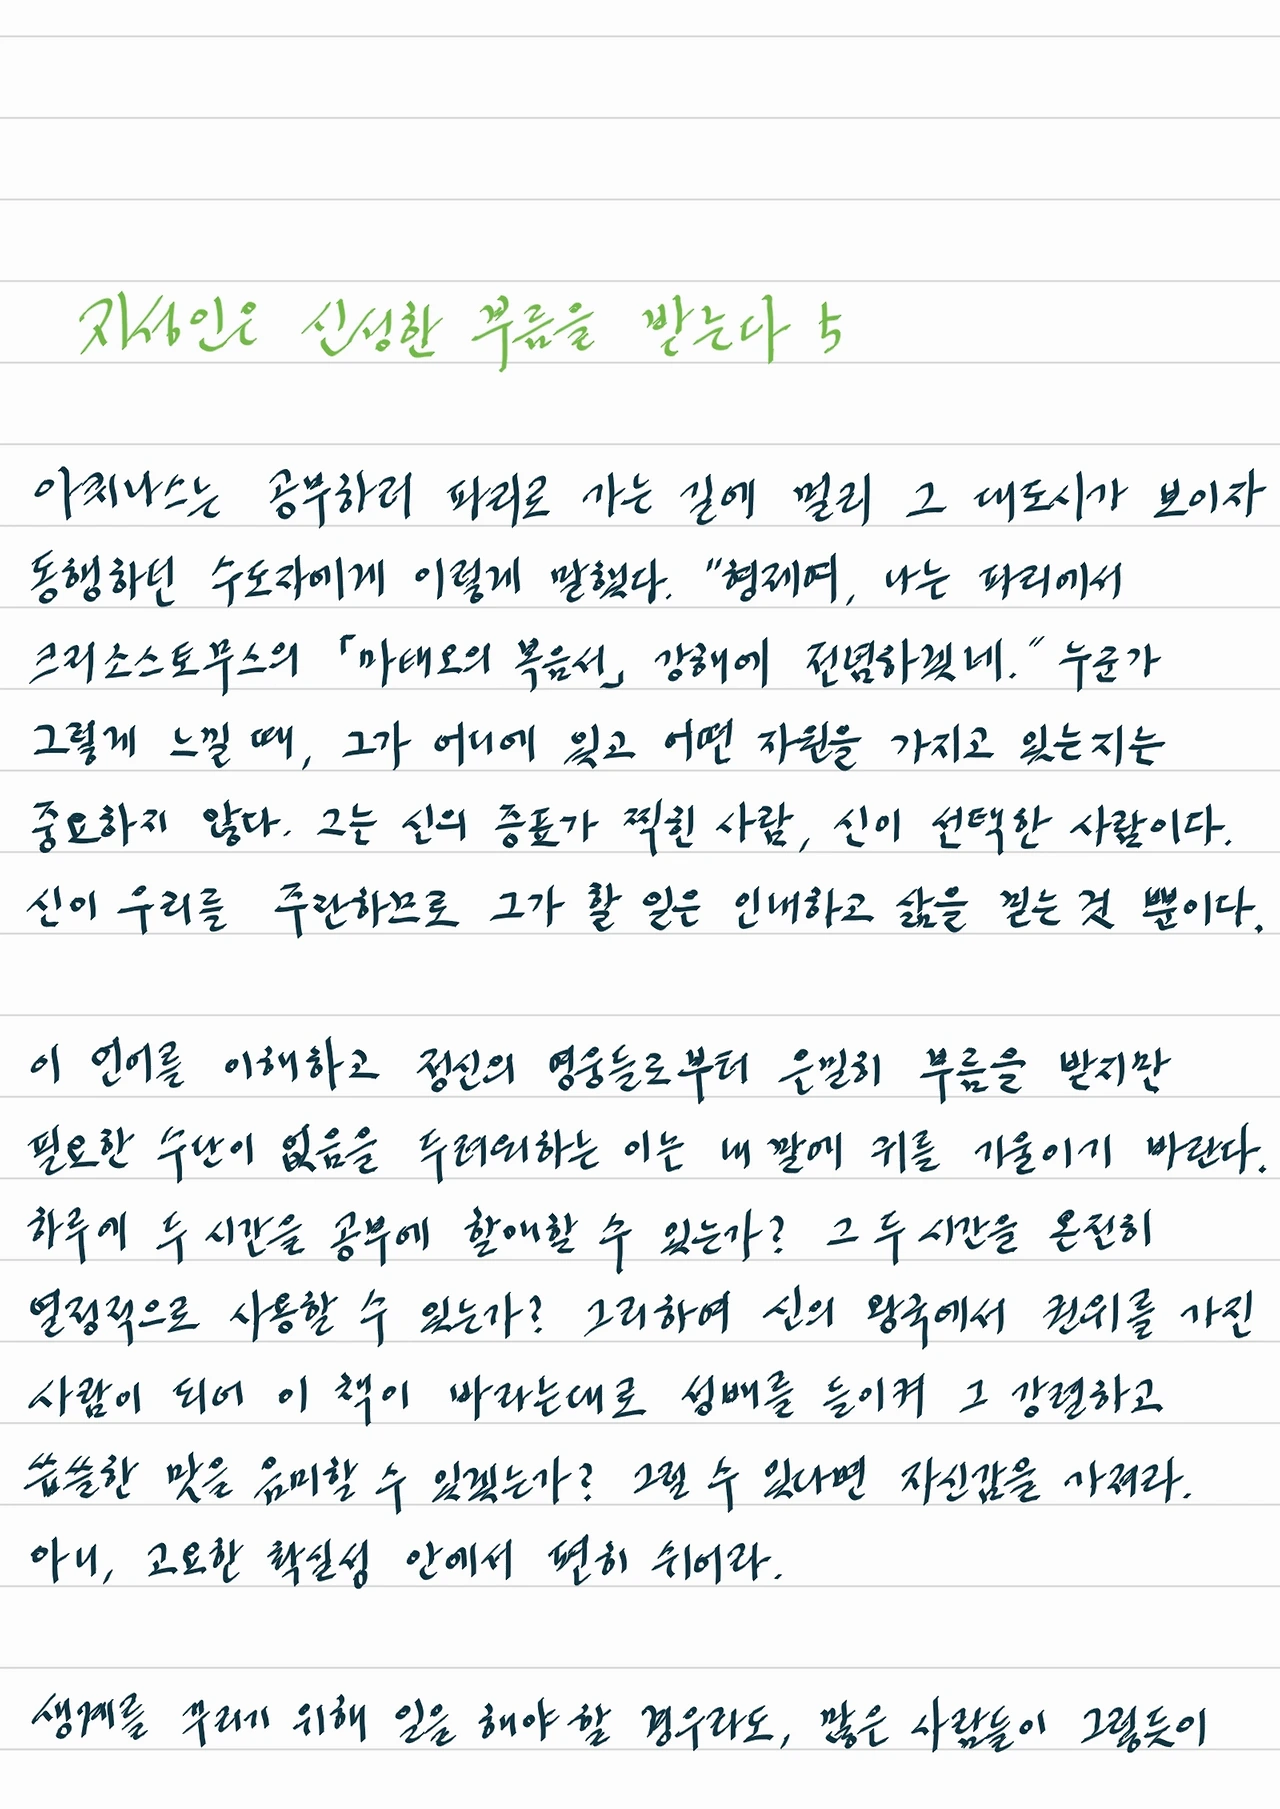 지성인은 신성한 부름을 받는다 5
아퀴나스는 공부하러 파리로 가는 길에 멀리 그 대도시가 보이자
동행하던 수도자에게 이렇게 말했다. "형제여, 나는 파리에서
크리소스토무스의 「마태오의 복음서」 강해에 전념하겠네." 누군가
그렇게 느낄 때, 그가 어디에 있고 어떤 자원을 가지고 있는지는
중요하지 않다. 그는 신의 증표가 찍힌 사람, 신이 선택한 사람이다.
신이 우리를 주관하므로 그가 할 일은 인내하고 삶을 믿는 것 뿐이다.
이 언어를 이해하고 정신의 영웅들로부터 은밀히 부름을 받지만
필요한 수단이 없음을 두려워하는 이는 내 말에 귀를 기울이기 바란다.
하루에 두 시간을 공부에 할애할 수 있는가? 그 두 시간을 온전히
열정적으로 사용할 수 있는가? 그리하여 신의 왕국에서 권위를 가진
사람이 되어 이 책이 바라는대로 성배를 들이켜 그 강렬하고
씁쓸한 맛을 음미할 수 있겠는가? 그럴 수 있다면 자신감을 가져라.
아니, 고요한 확실성 안에서 편히 쉬어라.
생계를 꾸리기 위해 일을 해야 할 경우라도, 많은 사람들이 그렇듯이